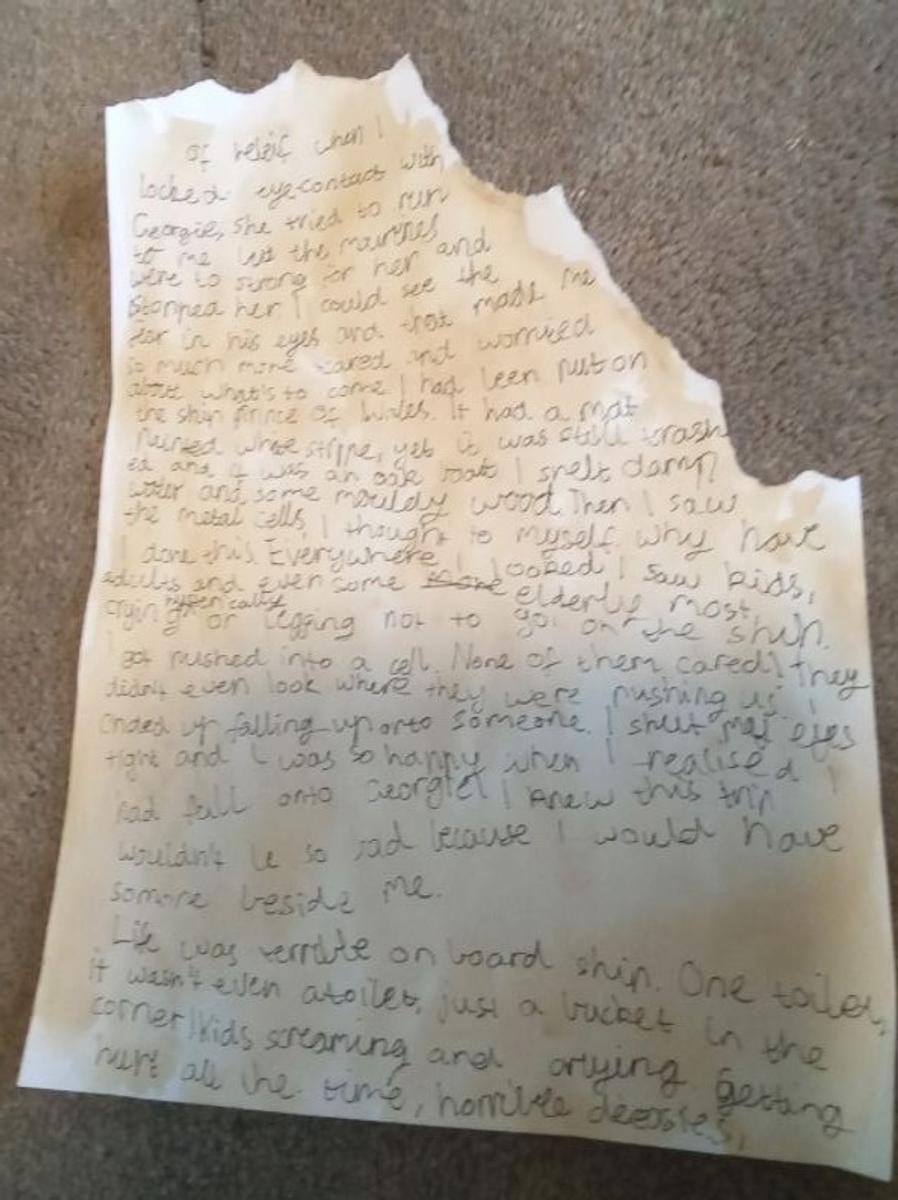 of releif when I
locked eyecontact with
Georgie, she tried to run
to me but the marines
were to strong for her and
stopped her. I could see the
fear in his eyes and that made me
so much more scared and worried
about what's to come. I had been put on
the ship Prince Of Wales. It had a mat
Painted white stripe, yet it was still trash
ed and it was an oak boat. I smelt damp
water and some mouldey wood. Then I saw
the metal cells, I thought to myself. Why have
I done this. Everywhere I looked I saw kids,
adults and even some elderly most,
crying hysterically or begging not to go on the ship.
I got pushed into a cell. None of them cared! They
didn't even look where they were pushing us. I
ended up falling up onto someone. I shut my eyes
tight and I was so happy when I realised I
had fell onto Georgie! I knew this trip
wouldn't be so bad because I would have
somone beside me.
Life was terrible on board ship. One toilet,
it wasn't even a toilet, just a bucket in the
corner! Kids screaming and crying getting
hurt all the time, horrible